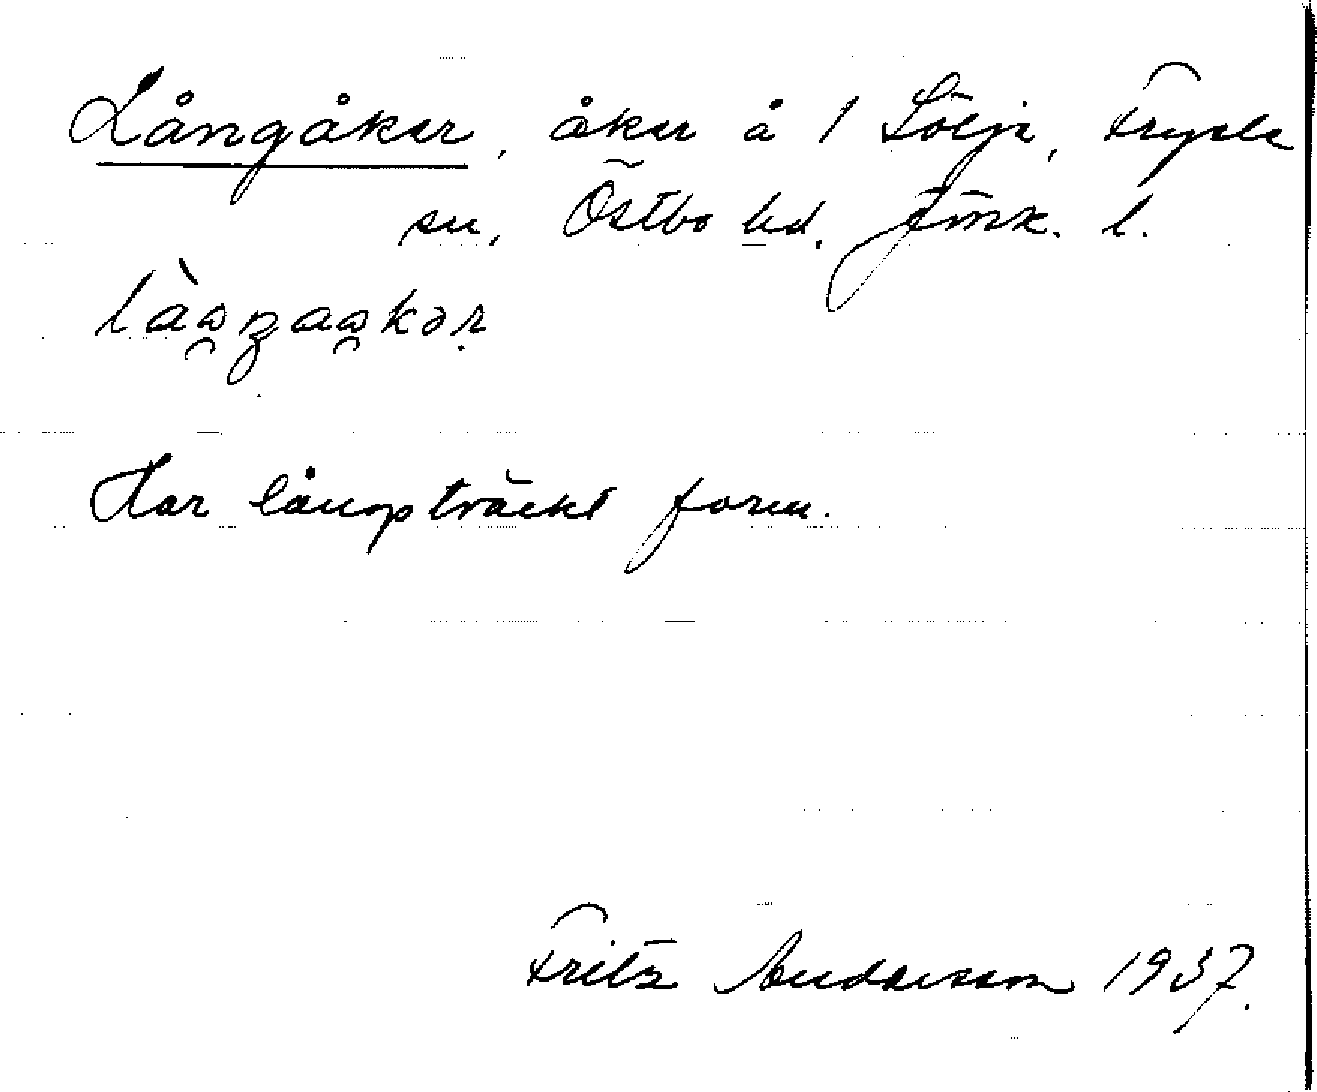 Långåker, åker å 1 Sölje, Fryele
sn, Östbo hd. Jönk. l.
Har långsträckt form.
Fritz Andersson 1937.